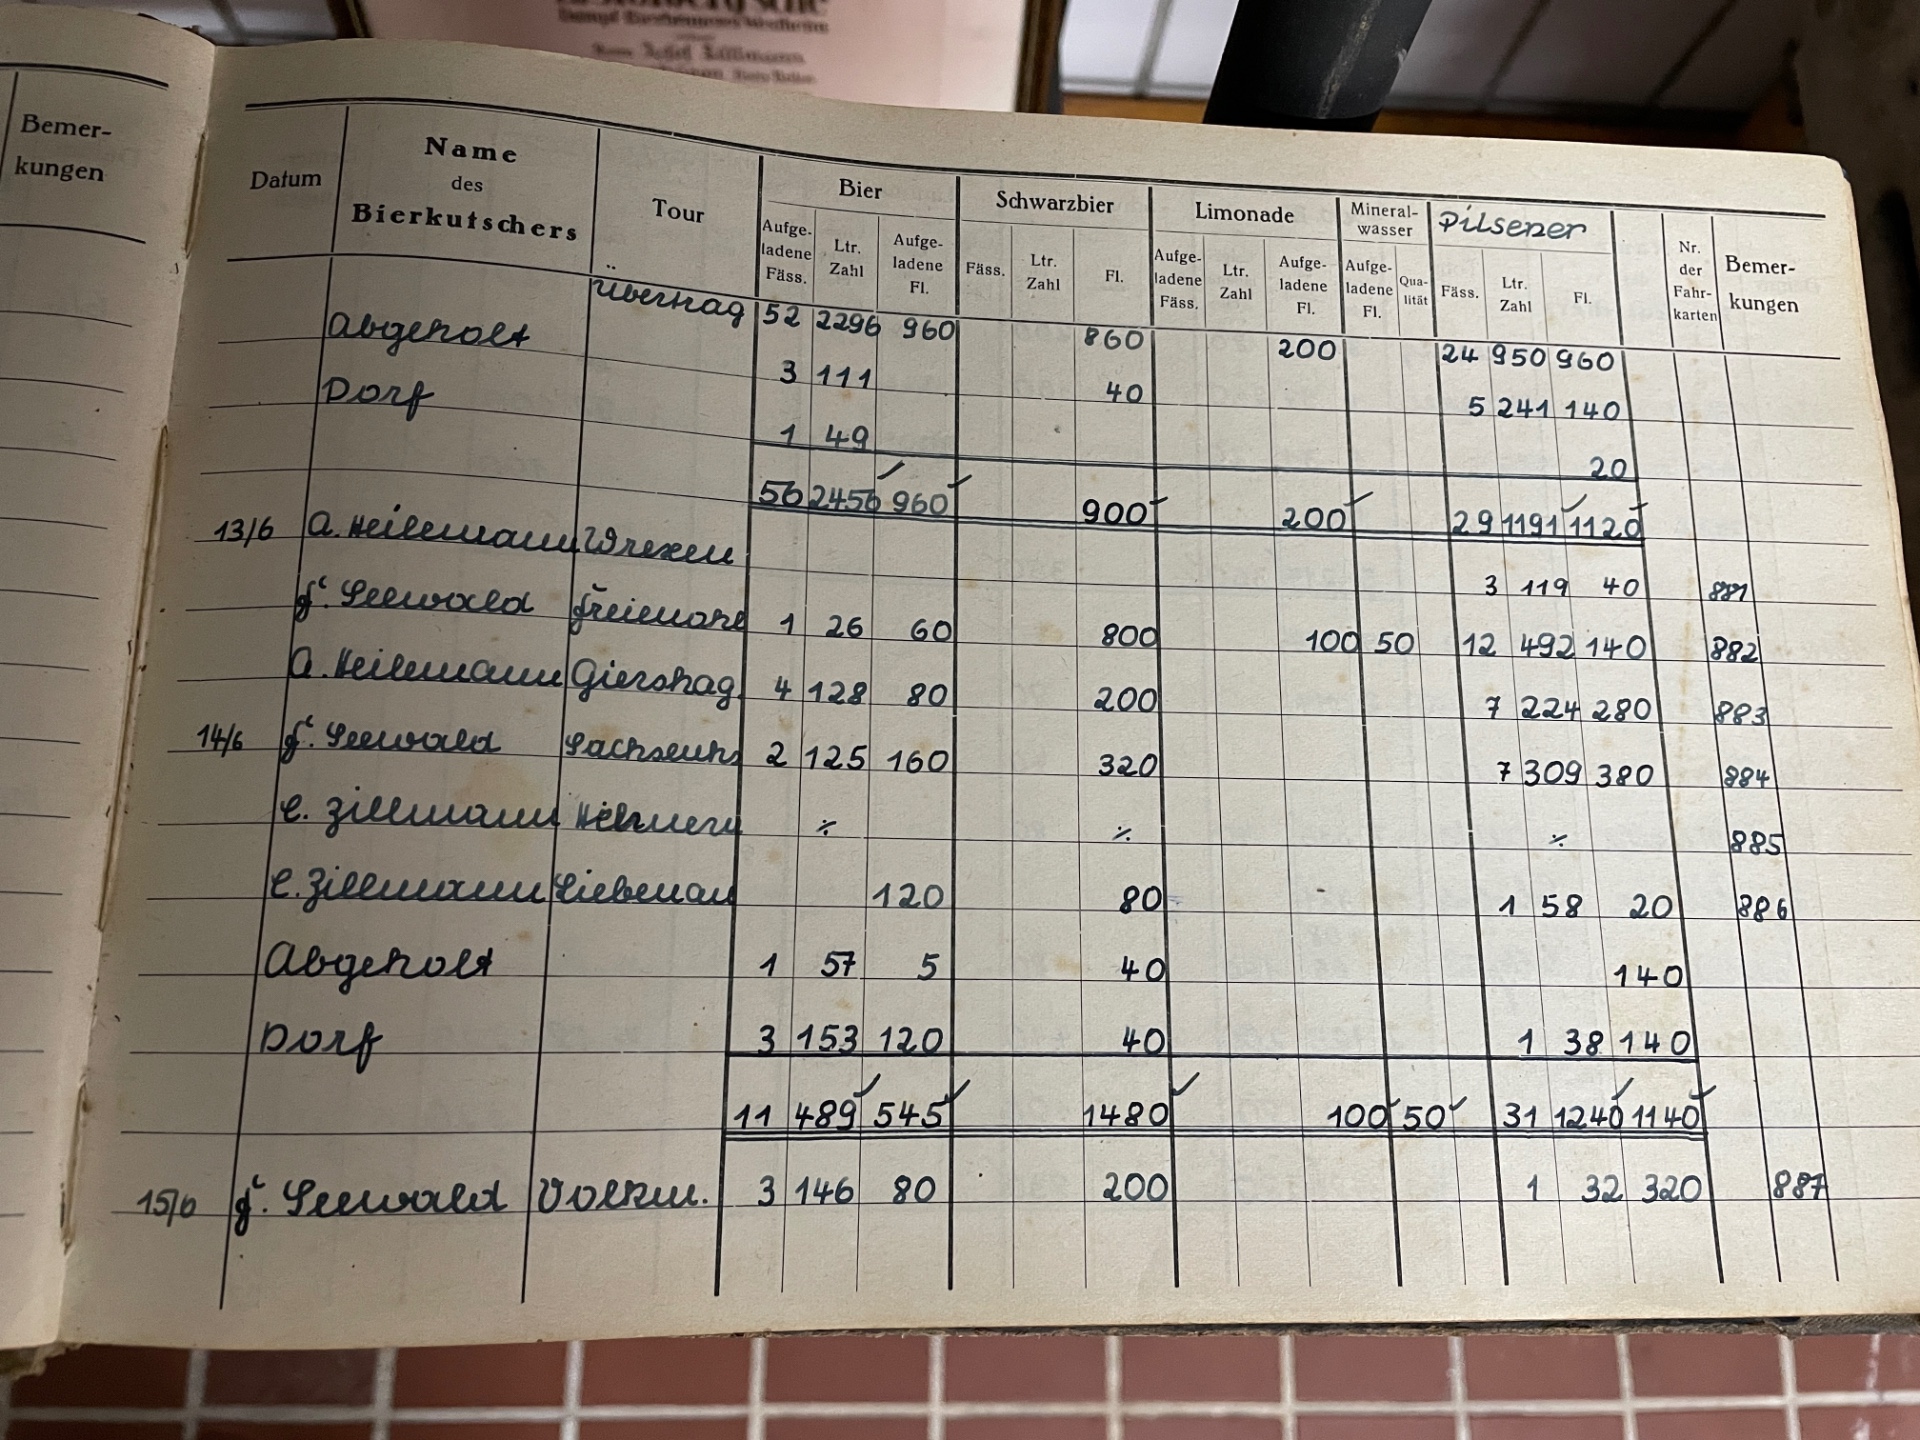 Dampf Bierbrauerei Westheim
Josef Lillmann
Bemer-
kungen
Datum
Name
des
Bierkutschers
Tour
Bier
Schwarzbier
Limonade
Mineral-
wasser
Pilsener
Nr.
der
Fahr-
karten
Bemer-
kungen
Aufge-
ladene
Fäss.
Ltr.
Zahl
Aufge-
ladene
Fl.
Fäss.
Ltr.
Zahl
Fl.
Aufge-
ladene
Fäss.
Ltr.
Zahl
Aufge-
ladene
Fl.
Aufge-
ladene
Fl.
Qua-
lität
Fäss.
Ltr.
Zahl
Fl.
Übertrag 52 2296 960 860 200 24 950 960
Abgeholt 3 111 40 5 241 140
Dorf 1 49 20
56 2456 960 900 200 29 1191 1120
13/6 A. Heilemann Wrexen 3 119 40 881
F. Seewald 1 26 60 800 100 50 12 492 140 882
A. Heilemann Giershag. 4 128 80 200 7 224 280 883
14/6 F. Seewald Sachsenhs 2 125 160 320 7 309 380 884
E. Zillmann ./. ./. ./. 885
E. Zillmann Liebenau 120 80 1 58 20 886
Abgeholt 1 57 5 40 140
Dorf 3 153 120 40 1 38 140
11 489 545 1480 100 50 31 1240 1140
15/6 F. Seewald Volkm. 3 146 80 200 1 32 320 887